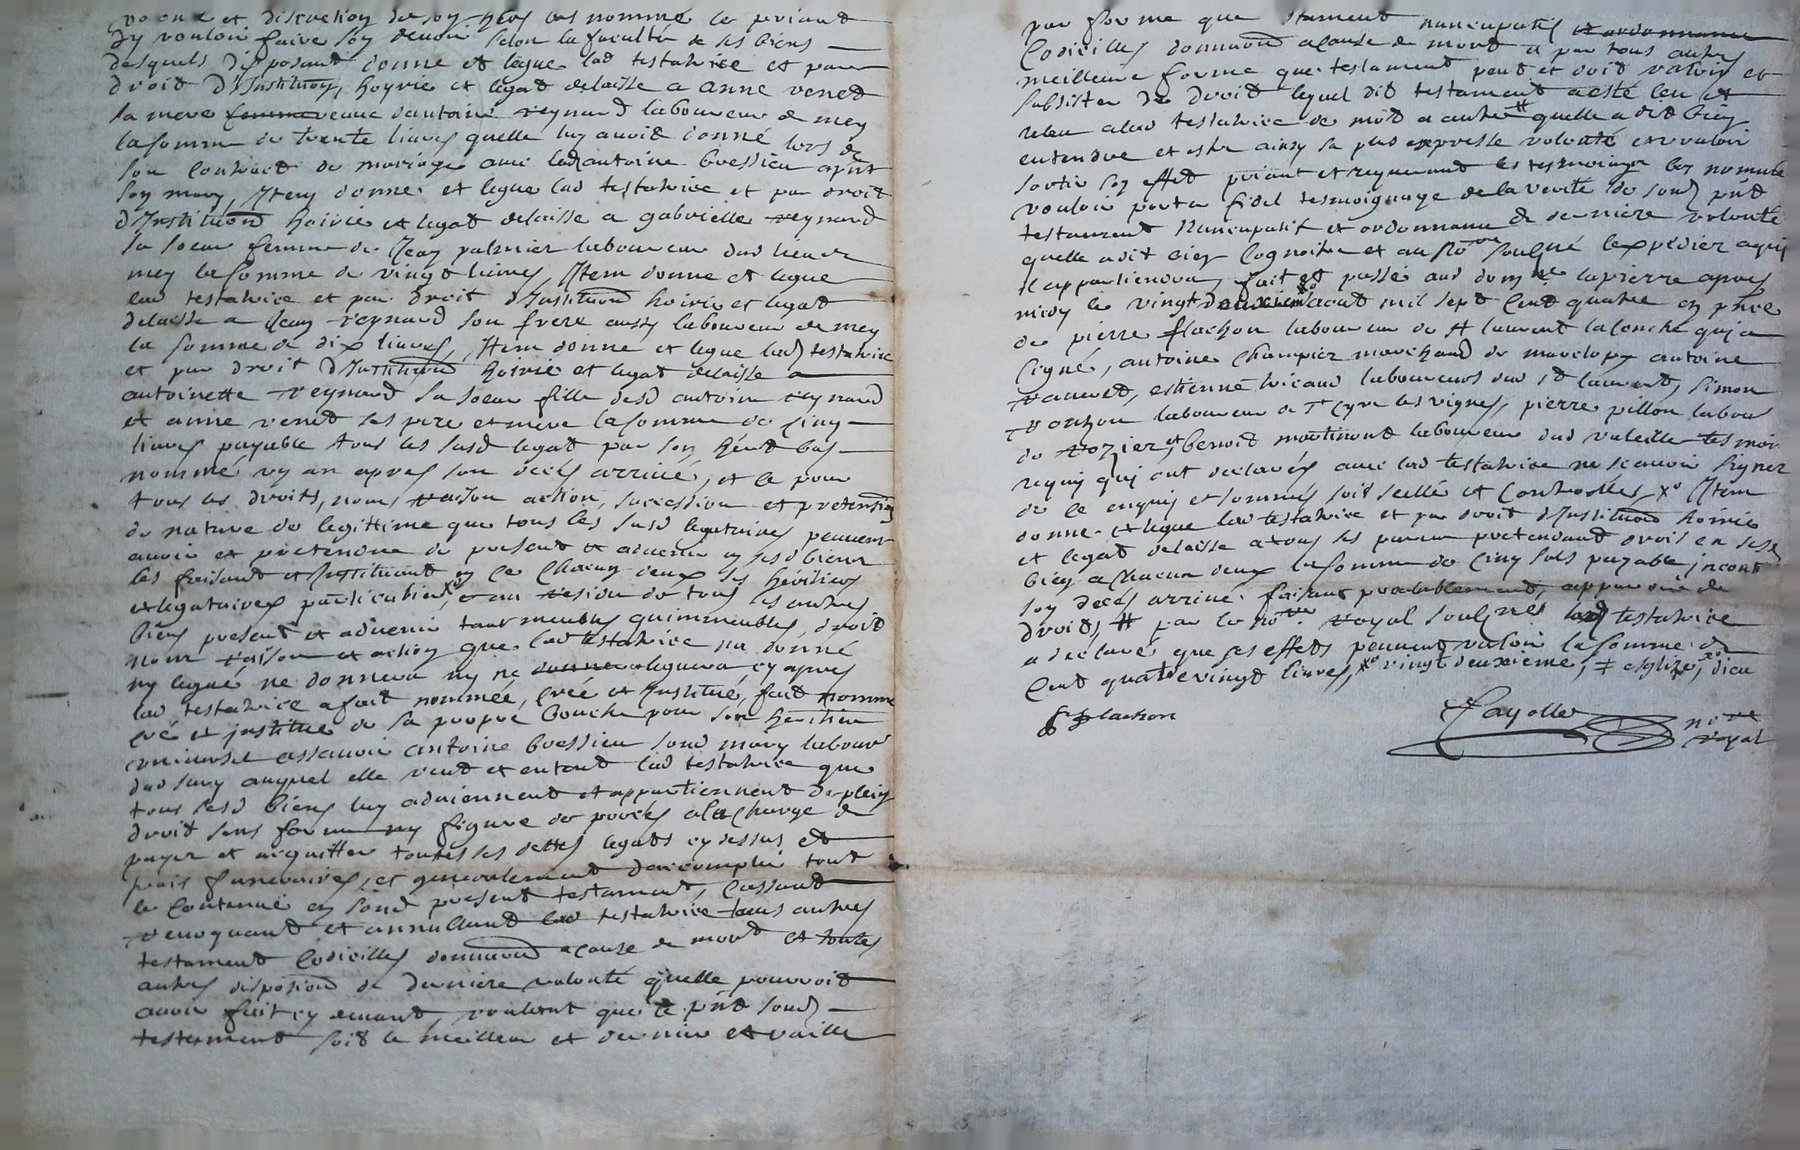 et discretion de son herer bas nommé le priant
dy vouloir faire son devoir selon la faculté de ses biens
desquels disposant donne et legue lad testatrice et par
droit d'Institution, hoyrie et legat delaisse a anne venet
sa mere femme veuve dantoine reynard laboureur de mey
la somme de trente livres quelle luy avoit donné lors de
son contract de mariage avec led antoine bressieu
son mary, Item donne et legue lad testatrice et par droit
d'Institution hoirie et legat delaisse a gabrielle reynard
sa soeur femme de Jean palmier laboureur dud lieu de
mey la somme de vingt livres, Item donne et legue
lad testatrice et par droit d'Institution hoirie et legat
delaisse a Jean reynard son frere aussy laboureur de mey
la somme de dix livres, Item donne et legue lad testatrice
et par droit d'Institution hoirie et legat delaisse a
antoinette reynard sa soeur fille desd antoine reynard
et anne venet ses pere et mere la somme de cinq
livres payable tous les susd legat par son herit bas
nommé un an apres son decés arrivé, et ce pour
tous les droits, noms, raison action, succession et pretension
de nature de legittime que tous les susd legataires peuvent
avoir et pretendre de present et advenir en sesd biens
les faisant et Instituant en ce chacun deux ses heritiers
et legataires particuliers, xo et au residu de tous ses autres
biens present et advenir tant meubles quimmeubles, droit
nom raison et action que lad testatrice na donné
ny legué ne donnera ny ne donne leguera cy apres
lad testatrice a fait nommée, creé et Institué, fait nomme
creé et institue de sa propre bouche pour son heritier
universel assavoir antoine bressieu sond mary labour
dud surg auquel elle veut et entend lad testatrice que
tous sesd biens luy adviennent et appartiennent de plein
droit sans forme ny figure de procés a la charge de
payer et acquitter toutes ses dettes legats cy dessus et
frais funeraires, et generalement daccomplir tout
le contenu en sond present testament, Cassant
revoquant et annullant lad testatrice tous autres
testament Codicilles donnation a cause de mort et toutes
autres disposition de derniere volonté quelle pourroit
avoir fait cy devant, voulant que le pnt sond
testament soit le meilleur et dernier et vaille
par forme que stament nuncupatif et ordonnance
Codicilles donnation a cause de mort et par tous autres
meilleure forme que testament peut et doit valoir et
subsister de droit lequel dit testament a esté leu et
releu a lad testatrice de mot a autre # quelle a dit bien
entendre et estre ainsy sa plus expresse volonté et vouloir
sortir son effet priant et requerant les tesmoings bas nommés
vouloir porter fidel tesmoignage de la verité de sond pnt
testament Nuncupatif et ordonnance de derniere volonté
quelle a dit bien cognoitre et au Nore soulsné lexpedier a qui
il appartiendra, fait et passé aud dom ne lapierre apres
midy le vingt deuxiem xo aout mil sept cent quatre en pnce
de pierre flachon laboureur de st laurent la conche qui a
signé, antoine Champier marchand de marclopt antoine
rauvet, estienne vicaud laboureurs dud st laurent, simon
ronzon laboureur de St Cyre les vignes, pierre pillon labour
de rozier et benoit mortimont laboureur dud valeille tesmoi
requis qui ont declarés avec lad testatrice ne scavoir signer
de ce enquis et sommés soit scellé et controollé xo Item
donne et legue lad testatrice et par droit d'Institution hoirie
et legat delaisse a tous ses parens pretendant droit en sesd
bien a chacun deux la somme de cinq sols payable incont
son decés arrivé faisant prealablement apparoir de
droit, # par le nore royal soulsné lad testatrice
a declaré que ses effets peuvent valoir la somme de
Cent quatrevingt livres, xo vingt deuxieme, # esglize, xo dieu
P flachon
Fayolle
nore
royal